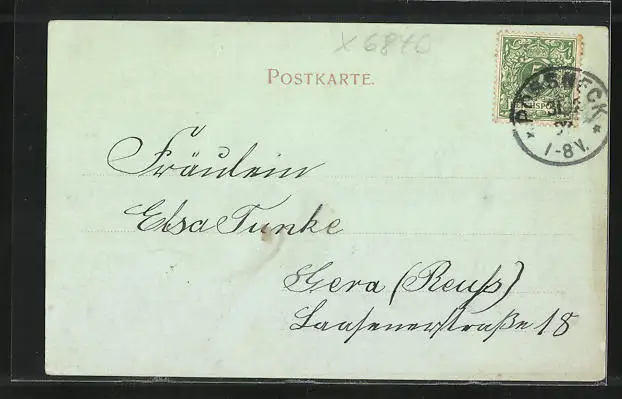 X 6846
POSTKARTE.
POESSNECK
31
1-8V.
Fräulein
Elsa Funke
Gera (Reuß)
Laasenerstraße 18